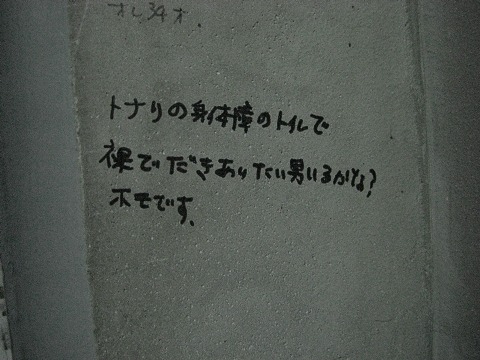 オレ34才.
トナリの身体障のトイレで
裸でだきあいたい男いるかな?
ホモです.